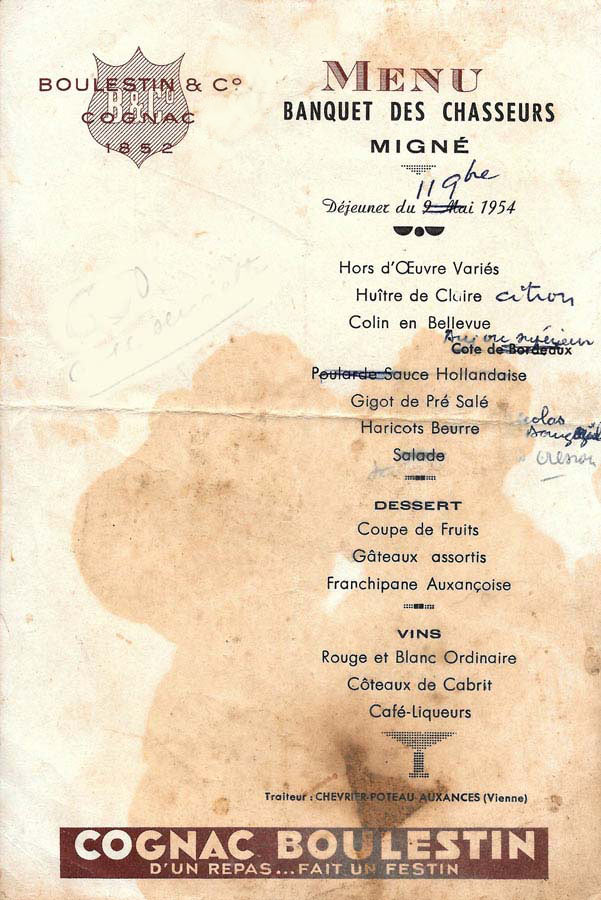 BOULESTIN & Cº
COGNAC
1852
MENU
BANQUET DES CHASSEURS
MIGNÉ
11 9bre
Déjeuner du 9 Mai 1954
Hors d'Œuvre Variés
Huître de Claire citron
Colin en Bellevue
supérieur
Cote de Bordeaux
Poularde Sauce Hollandaise
Gigot de Pré Salé
Haricots Beurre
Salade
cresson
DESSERT
Coupe de Fruits
Gâteaux assortis
Franchipane Auxançoise
VINS
Rouge et Blanc Ordinaire
Côteaux de Cabrit
Café-Liqueurs
Traiteur : CHEVRIER-POTEAU-AUXANCES (Vienne)
COGNAC BOULESTIN
D'UN REPAS...FAIT UN FESTIN